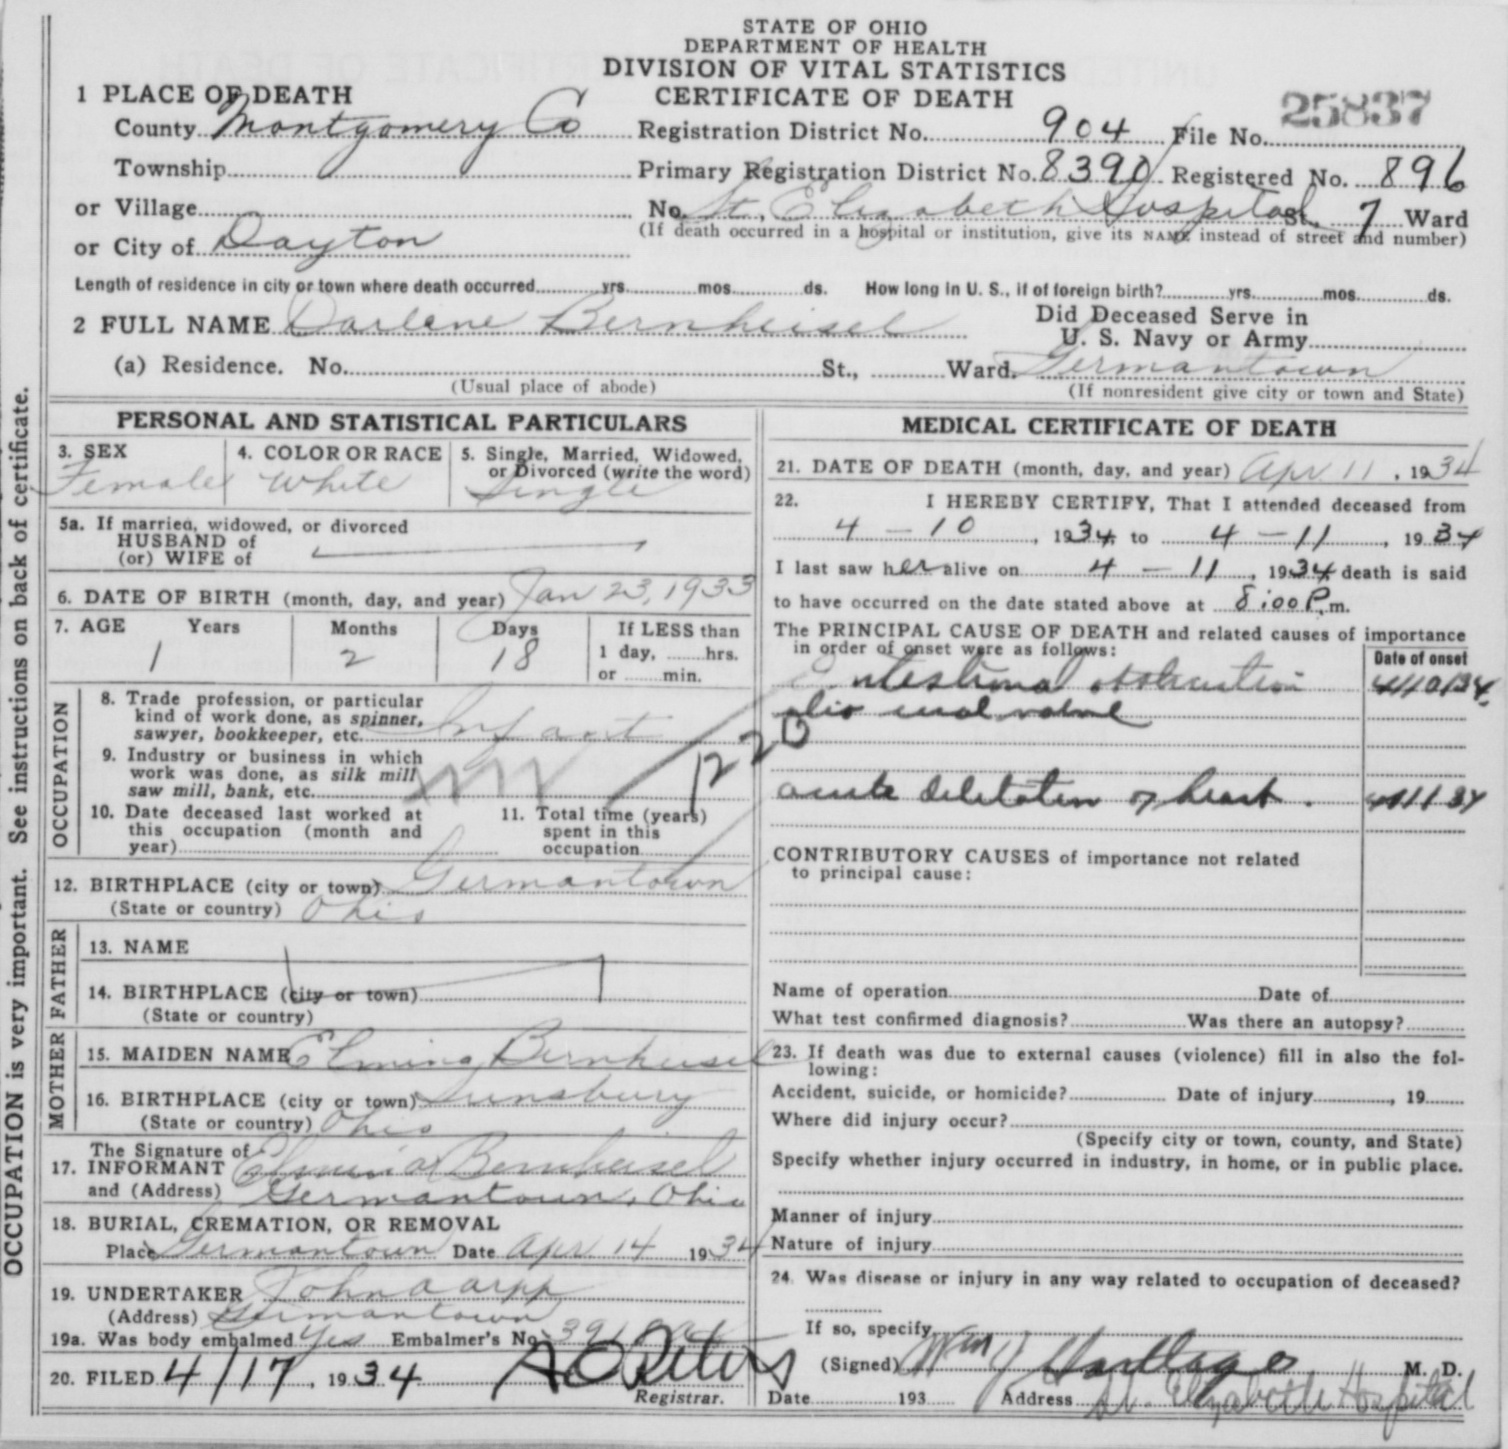 STATE OF OHIO
DEPARTMENT OF HEALTH
DIVISION OF VITAL STATISTICS
CERTIFICATE OF DEATH
25837
1 PLACE OF DEATH
County Montgomery Co Registration District No. 904 File No.
Township Primary Registration District No. 8390 Registered No. 896
or Village No. St. Elizabeth Hospital St., 7 Ward
(If death occurred in a hospital or institution, give its NAME instead of street and number)
or City of Dayton
Length of residence in city or town where death occurred yrs. mos. ds. How long in U. S., if of foreign birth? yrs. mos. ds.
2 FULL NAME Darlene Bernheisel Did Deceased Serve in U. S. Navy or Army
(a) Residence. No. St., Ward. Germantown
(Usual place of abode) (If nonresident give city or town and State)
PERSONAL AND STATISTICAL PARTICULARS
3. SEX Female
4. COLOR OR RACE White
5. Single, Married, Widowed, or Divorced (write the word) Single
5a. If married, widowed, or divorced
HUSBAND of
(or) WIFE of
6. DATE OF BIRTH (month, day, and year) Jan 23, 1933
7. AGE Years Months Days If LESS than
1 2 18 1 day, hrs.
or min.
OCCUPATION
8. Trade profession, or particular
kind of work done, as spinner,
sawyer, bookkeeper, etc. Infant
9. Industry or business in which
work was done, as silk mill
saw mill, bank, etc.
10. Date deceased last worked at
this occupation (month and
year)
11. Total time (years)
spent in this
occupation
12. BIRTHPLACE (city or town) Germantown
(State or country) Ohio
FATHER
13. NAME
14. BIRTHPLACE (city or town)
(State or country)
MOTHER
15. MAIDEN NAME Elmina Bernheisel
16. BIRTHPLACE (city or town)
(State or country) Ohio
17. The Signature of
INFORMANT Elmina Bernheisel
and (Address) Germantown, Ohio
18. BURIAL, CREMATION, OR REMOVAL
Place Germantown Date Apr. 14 1934
19. UNDERTAKER John
(Address) Germantown
19a. Was body embalmed Yes Embalmer's No.
20. FILED 4/17, 1934
Registrar.
MEDICAL CERTIFICATE OF DEATH
21. DATE OF DEATH (month, day, and year) Apr. 11, 1934
22. I HEREBY CERTIFY, That I attended deceased from
4 - 10, 1934 to 4 - 11, 1934
I last saw her alive on 4 - 11, 1934 death is said
to have occurred on the date stated above at 8:00 P.m.
The PRINCIPAL CAUSE OF DEATH and related causes of importance
in order of onset were as follows:
Date of onset
Intestinal obstruction 4/10/34
120
acute dilitation of heart. 4/11/34
CONTRIBUTORY CAUSES of importance not related
to principal cause:
Name of operation Date of
What test confirmed diagnosis? Was there an autopsy?
23. If death was due to external causes (violence) fill in also the following:
Accident, suicide, or homicide? Date of injury, 19
Where did injury occur?
(Specify city or town, county, and State)
Specify whether injury occurred in industry, in home, or in public place.
Manner of injury
Nature of injury
24. Was disease or injury in any way related to occupation of deceased?
If so, specify
(Signed) Wm M. D.
Date 193 Address St. Elizabeth Hospital
OCCUPATION is very important. See instructions on back of certificate.